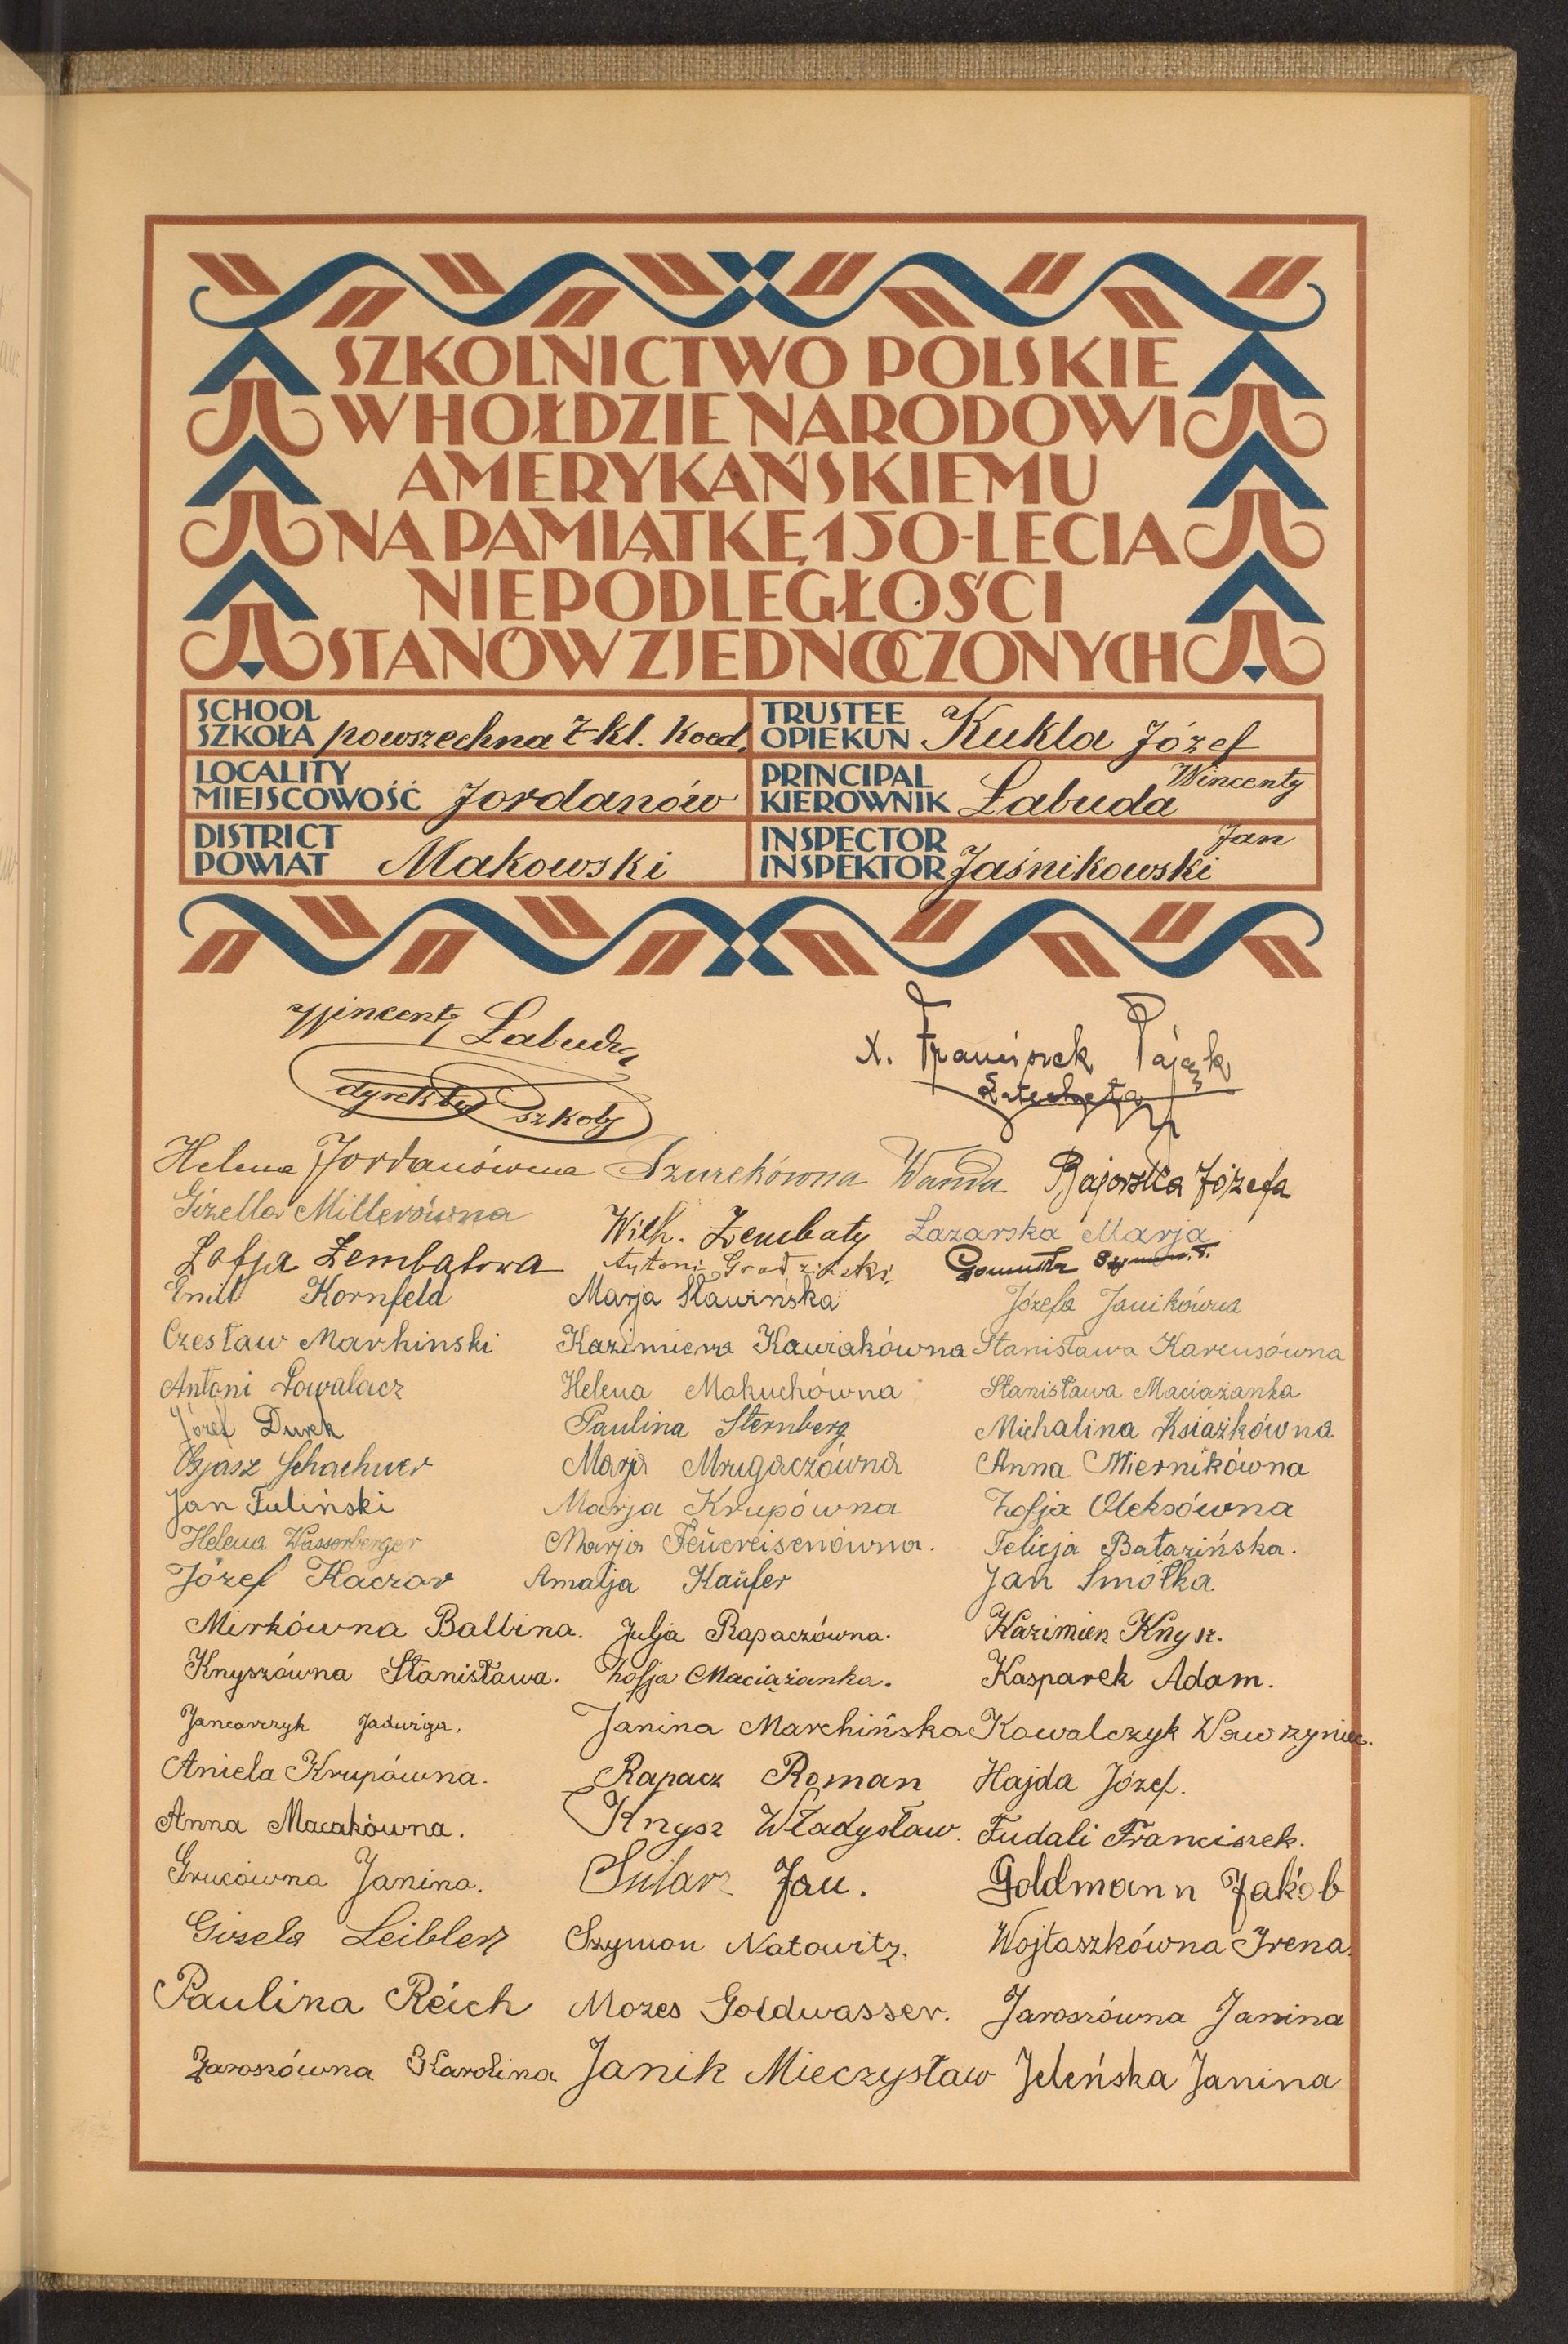 SZKOLNICTWO POLSKIE
W HOŁDZIE NARODOWI
AMERYKAŃSKIEMU
NA PAMIĄTKĘ 150-LECIA
NIEPODLEGŁOŚCI
STANÓW ZJEDNOCZONYCH
SCHOOL
SZKOŁA powszechna 7-kl. koed.
TRUSTEE
OPIEKUN Kukla Józef
LOCALITY
MIEJSCOWOŚĆ Jordanów
PRINCIPAL
KIEROWNIK Łabuda Wincenty
DISTRICT
POWIAT Makowski
INSPECTOR
INSPEKTOR Jaśnikowski Jan
Wincenty Łabuda
dyrektor szkoły
X. Franciszek Pająk
Katecheta
Helena Jordanówna Szurekówna Wanda Bajorska Józefa
Gizella Millerówna Wilh. Zembaty Łazarska Marja
Zofja Zembatowa Antoni Grodziński Gomułka
Emil Kornfeld Marja Sławińska Józefa Janikówna
Czesław Marhinski Kazimiera Kawiakówna Stanisława Karcusówna
Antoni Powalacz Helena Makuchówna Stanisława Maciażanka
Józef Durek Paulina Sternberg Michalina Książkówna
Ozjasz Schachner Marja Mrugaczówna Anna Miernikówna
Jan Fuliński Marja Krupówna Zofja Oleksówna
Helena Wasserberger Marja Feüereisenówna. Felicja Batazińska.
Józef Kaczor Amalja Kaüfer Jan Smółka.
Mirkówna Balbina. Julja Rapaczówna. Kazimierz Knysz.
Knyszówna Stanisława. Zofja Maciążanka. Kasparek Adam.
Jancarczyk Jadwiga. Janina Marchińska Kowalczyk Wawrzyniec.
Aniela Krupówna. Rapacz Roman Hajda Józef.
Anna Macakówna. Knysz Władysław. Fudali Franciszek.
Grucówna Janina. Sularz Jan. Goldmann Jakób
Gizela Leibler Szymon Natowitz. Wojtaszkówna Irena.
Paulina Reich Mozes Goldwasser. Jaroszówna Janina
Jaroszówna Karolina Janik Mieczysław Jeleńska Janina